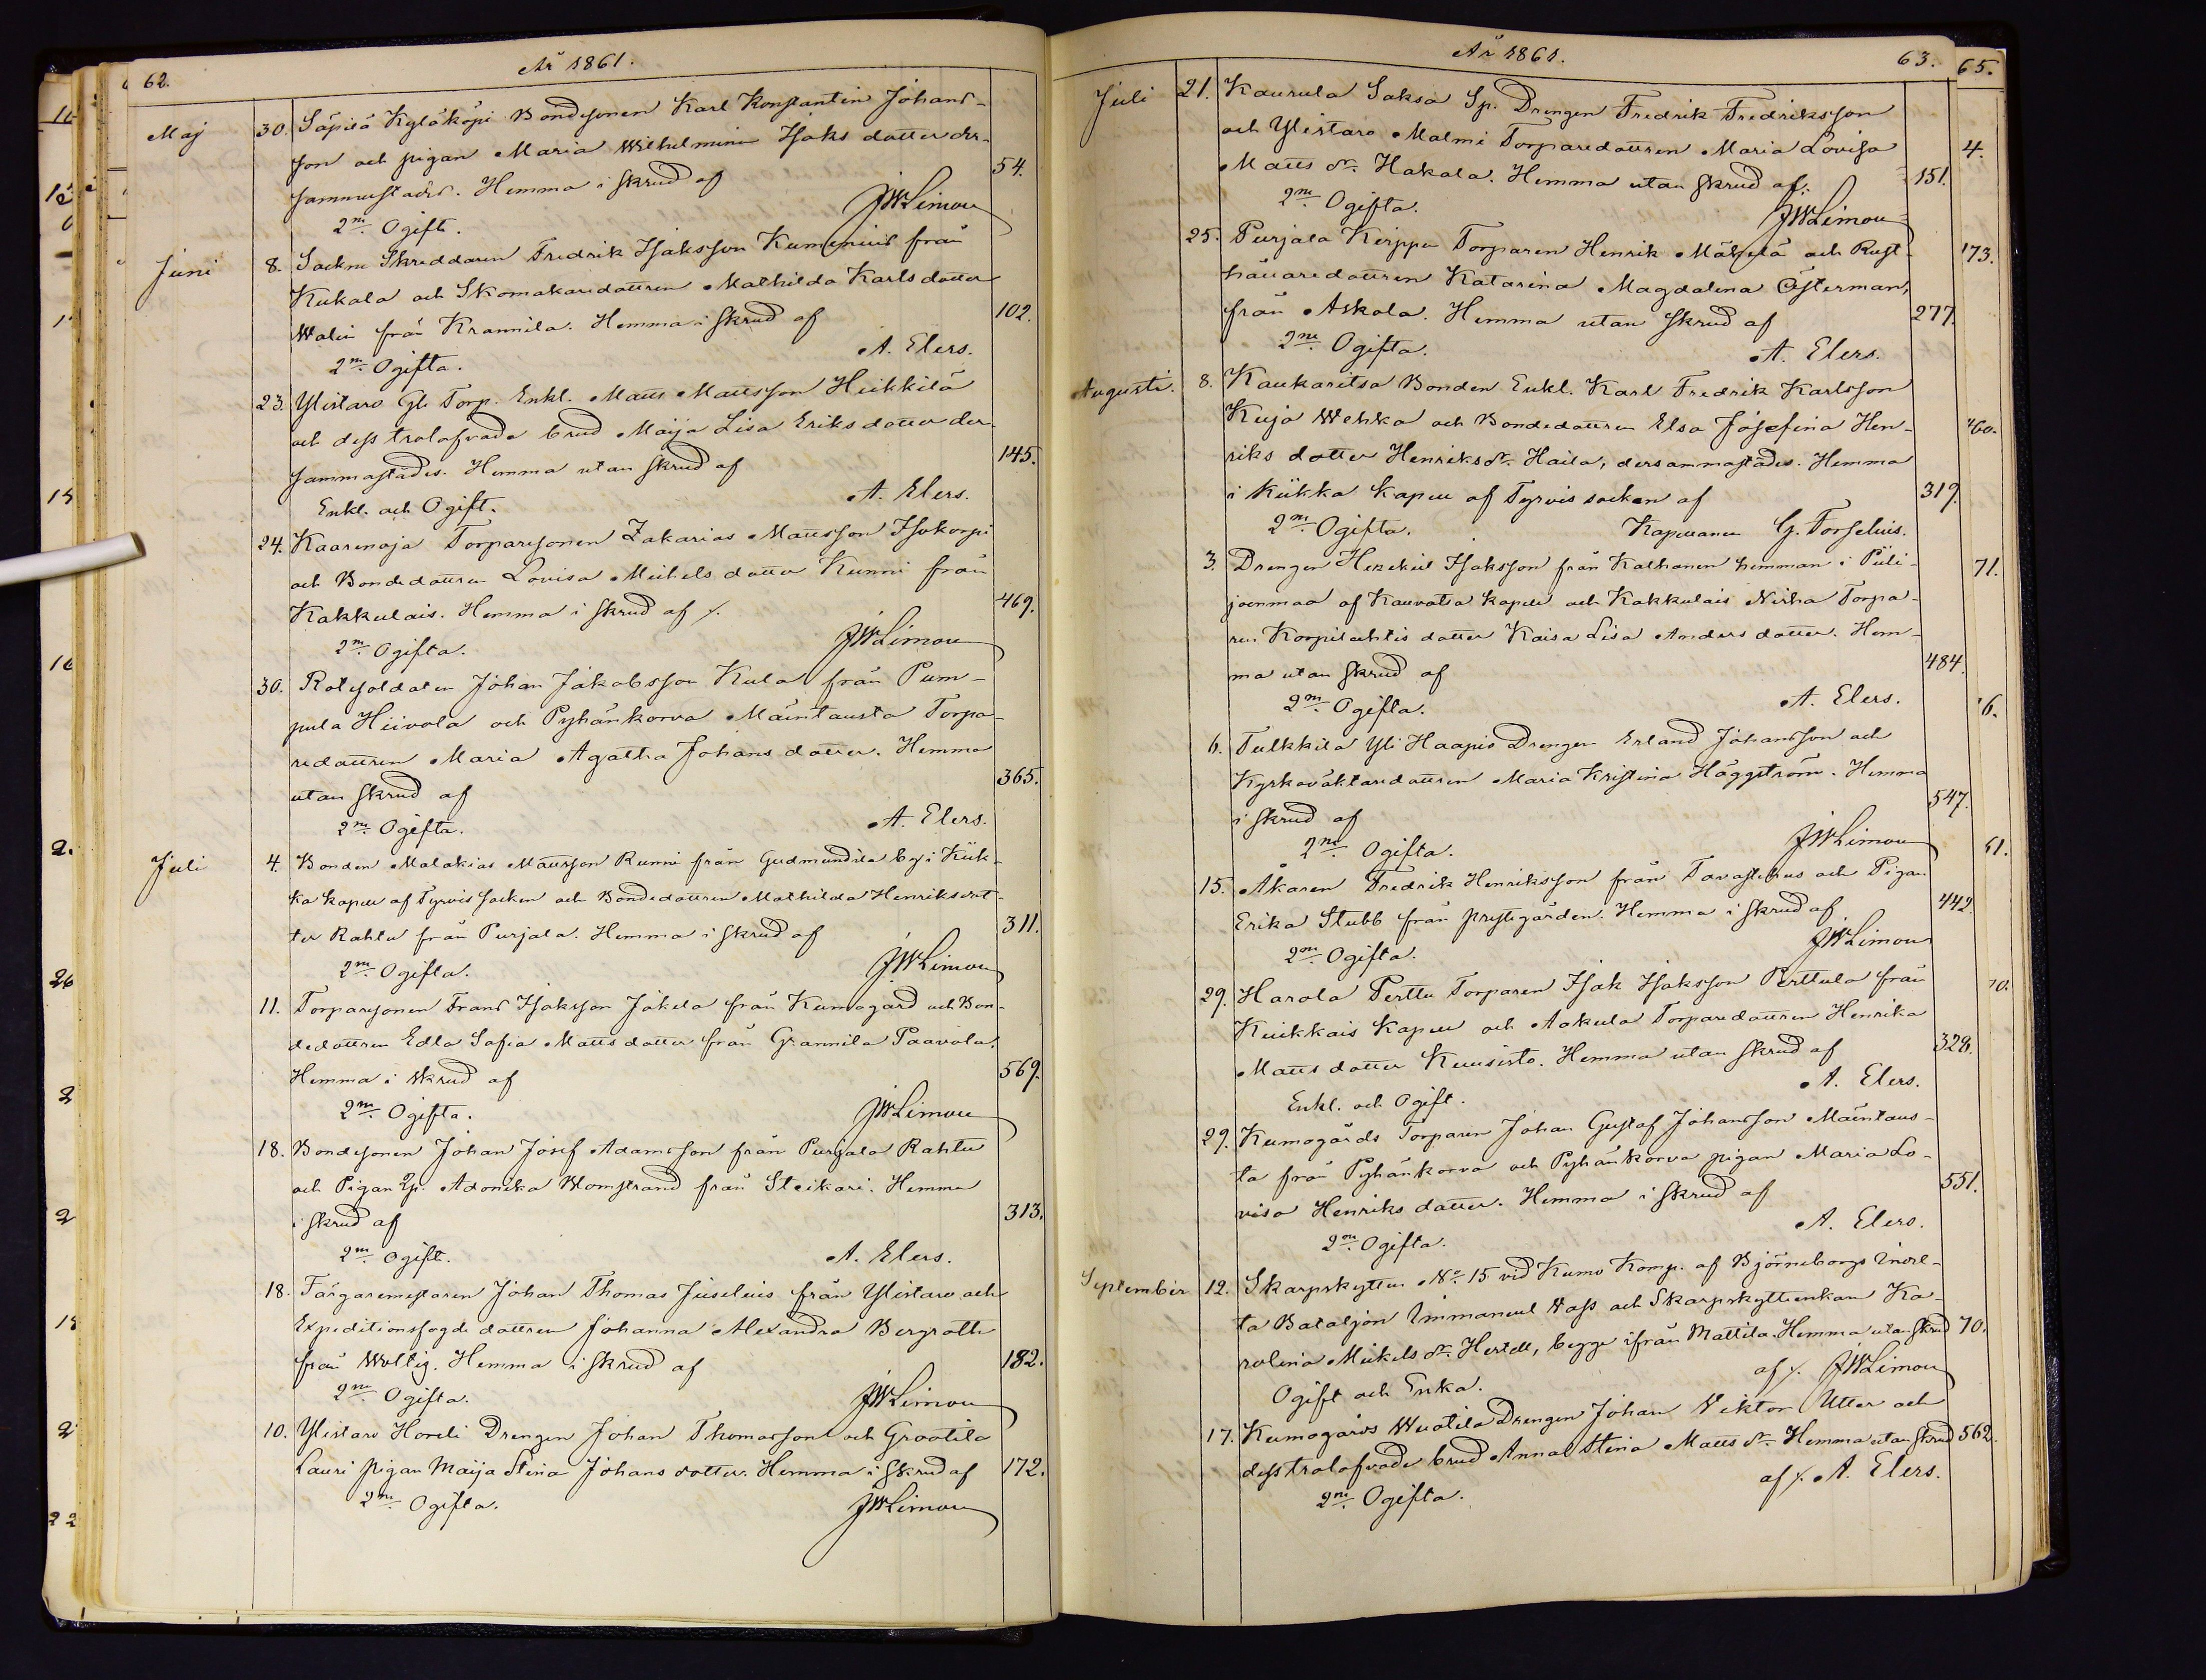 62.
År 1861.
Maj 30. Säpilä Kyläköpi Bondsonen Karl Konstantin Johans-
son och pigan Maria Wilhelmina Isaks dotter der-
sammastads. Hemma i skrud af 54.
2ne Ogift. JWLimon
Juni 8. Sockne Skreddaren Fredrik Isaksson Kumenius från
Kukola och Skomakaredottren Mathilda Karls dotter
Walin från Krannila. Hemma i skrud af 102.
2ne Ogifta. A. Elers.
23. Ylistaro Torp. Enkl. Matts Mattsson Heikkilä
och dess trolofvade brud Maija Lisa Eriks dotter der
sammastädes. Hemma utan skrud af 145.
Enkl. och Ogift. A. Elers.
24. Kaarenoja Torparesonen Zakarias Mattsson Isokorpi
och Bondedottren Lovisa Michels dotter Kunni från
Kakkulais. Hemma i skrud af /. 469.
2ne Ogifta. JWLimon
30. Rotesoldaten Johan Jakobsson Kula från Pum-
pula Hiivola och Pyhänkorva Mäintausta Torpa-
redottren Maria Agatha Johans dotter. Hemma
utan skrud af 365.
2ne Ogifta. A. Elers.
Juli 4. Bonden Malakias Mattsson Runni från Gudmundila by i Kiik-
ka kapell af Tyrvis socken och Bondedottren Mathilda Henriksdot-
ter Rahtu från Purjala. Hemma i skrud af 311.
2ne Ogifta. JWLimon
11. Torparesonen Frans Isaksson Jokela från Kumogård och Bon-
dedottren Edla Sofia Matts dotter från Grannila Paavola.
Hemma i skrud af 569.
2ne Ogifta. JWLimon
18. Bondesonen Johan Josef Adamsson från Purjala Rahtu
och Pigan Sp. Adonika Blomstrand från Steikari. Hemma
i skrud af 313.
2ne Ogift. A. Elers.
18. Färgaremästaren Johan Thomas Juselius från Ylistaro och
Expeditionsfogde dottren Johanna Alexandra Bergroth
från Woltig. Hemma i skrud af 182.
2ne Ogifta. JWLimon
10. Ylistaro Horeli Drengen Johan Thomasson och Grootila
Lauri pigan Maija Stina Johans dotter. Hemma i skrud af 172.
2ne Ogifta. JWLimon
År 1861.
63.
65.
Juli 21. Kaurula Saksa Sp. Drengen Fredrik Fredriksson
och Ylistaro Malmi Torparedottren Maria Lovisa
Matts dr. Hakala. Hemma utan skrud af. 151.
2ne Ogifta. JWLimon
25. Purjala Kerppu Torparen Henrik Mäkelä och Rust-
hållaredottren Katarina Magdalena Österman,
från Askola. Hemma utan skrud af 277.
2ne Ogifta. A. Elers.
Augusti. 8. Kaukaritsa Bonden Enkl. Karl Fredrik Karlsson
Kuja Wehka och Bondedottren Elsa Josefina Hen-
riks dotter Henriks dr. Haila, dersammastädes. Hemma
i Kiikka kapell af Tyrvis socken af 319.
2ne Ogifta. Kapellanen G. Forselius.
3. Drengen Hezekiel Isaksson från Kalhanen hemman i Piili-
joenmaa af Kauvatsa kapell och Kakkulais Nirha Torpa-
ren Korpilahtis dotter Kaisa Lisa Anders dotter. Hem-
ma utan skrud af 484.
2ne Ogifta. A. Elers.
6. Tulkkila Yli Haapio Drengen Erland Johansson och
Kyrkoväktaredottren Maria Kristina Häggström. Hemma
i skrud af 547.
2ne Ogifta. JWLimon
15. Åkaren Fredrik Henriksson från Tavastehus och Pigan
Erika Stubb från prestgården. Hemma i skrud af 442.
2ne Ogifta. JWLimon
29. Harola Perttu Torparen Isak Isaksson Perttula från
Kiukkais kapell och Aakula Torparedottren Henrika
Matts dotter Kuusisto. Hemma utan skrud af 328.
Enkl. och Ogift. A. Elers.
29. Kumogårds Torparen Johan Gustaf Johansson Mäintaus-
ta från Pyhänkorva och Pyhänkorva pigan Maria Lo-
visa Henriks dotter. Hemma i skrud af 551.
2ne Ogifta. A. Elers.
September 12. Skarpskytten No. 15 vid Kumo Komp. af Björneborgs Indel-
ta Bataljon Immanuel Wass och Skarpskytteenkan Ka-
rolina Mickels dr. Hertell, begge ifrån Mattila. Hemma utan skrud 70.
Ogift och Enka. af /. JWLimon
17. Kumogårds Wuotila Drengen Johan Viktor Utter och
dess trolofvade brud Anna Stina Matts dr. Hemma utan skrud 562.
2ne Ogifta. af /. A. Elers.
4.
173.
71.